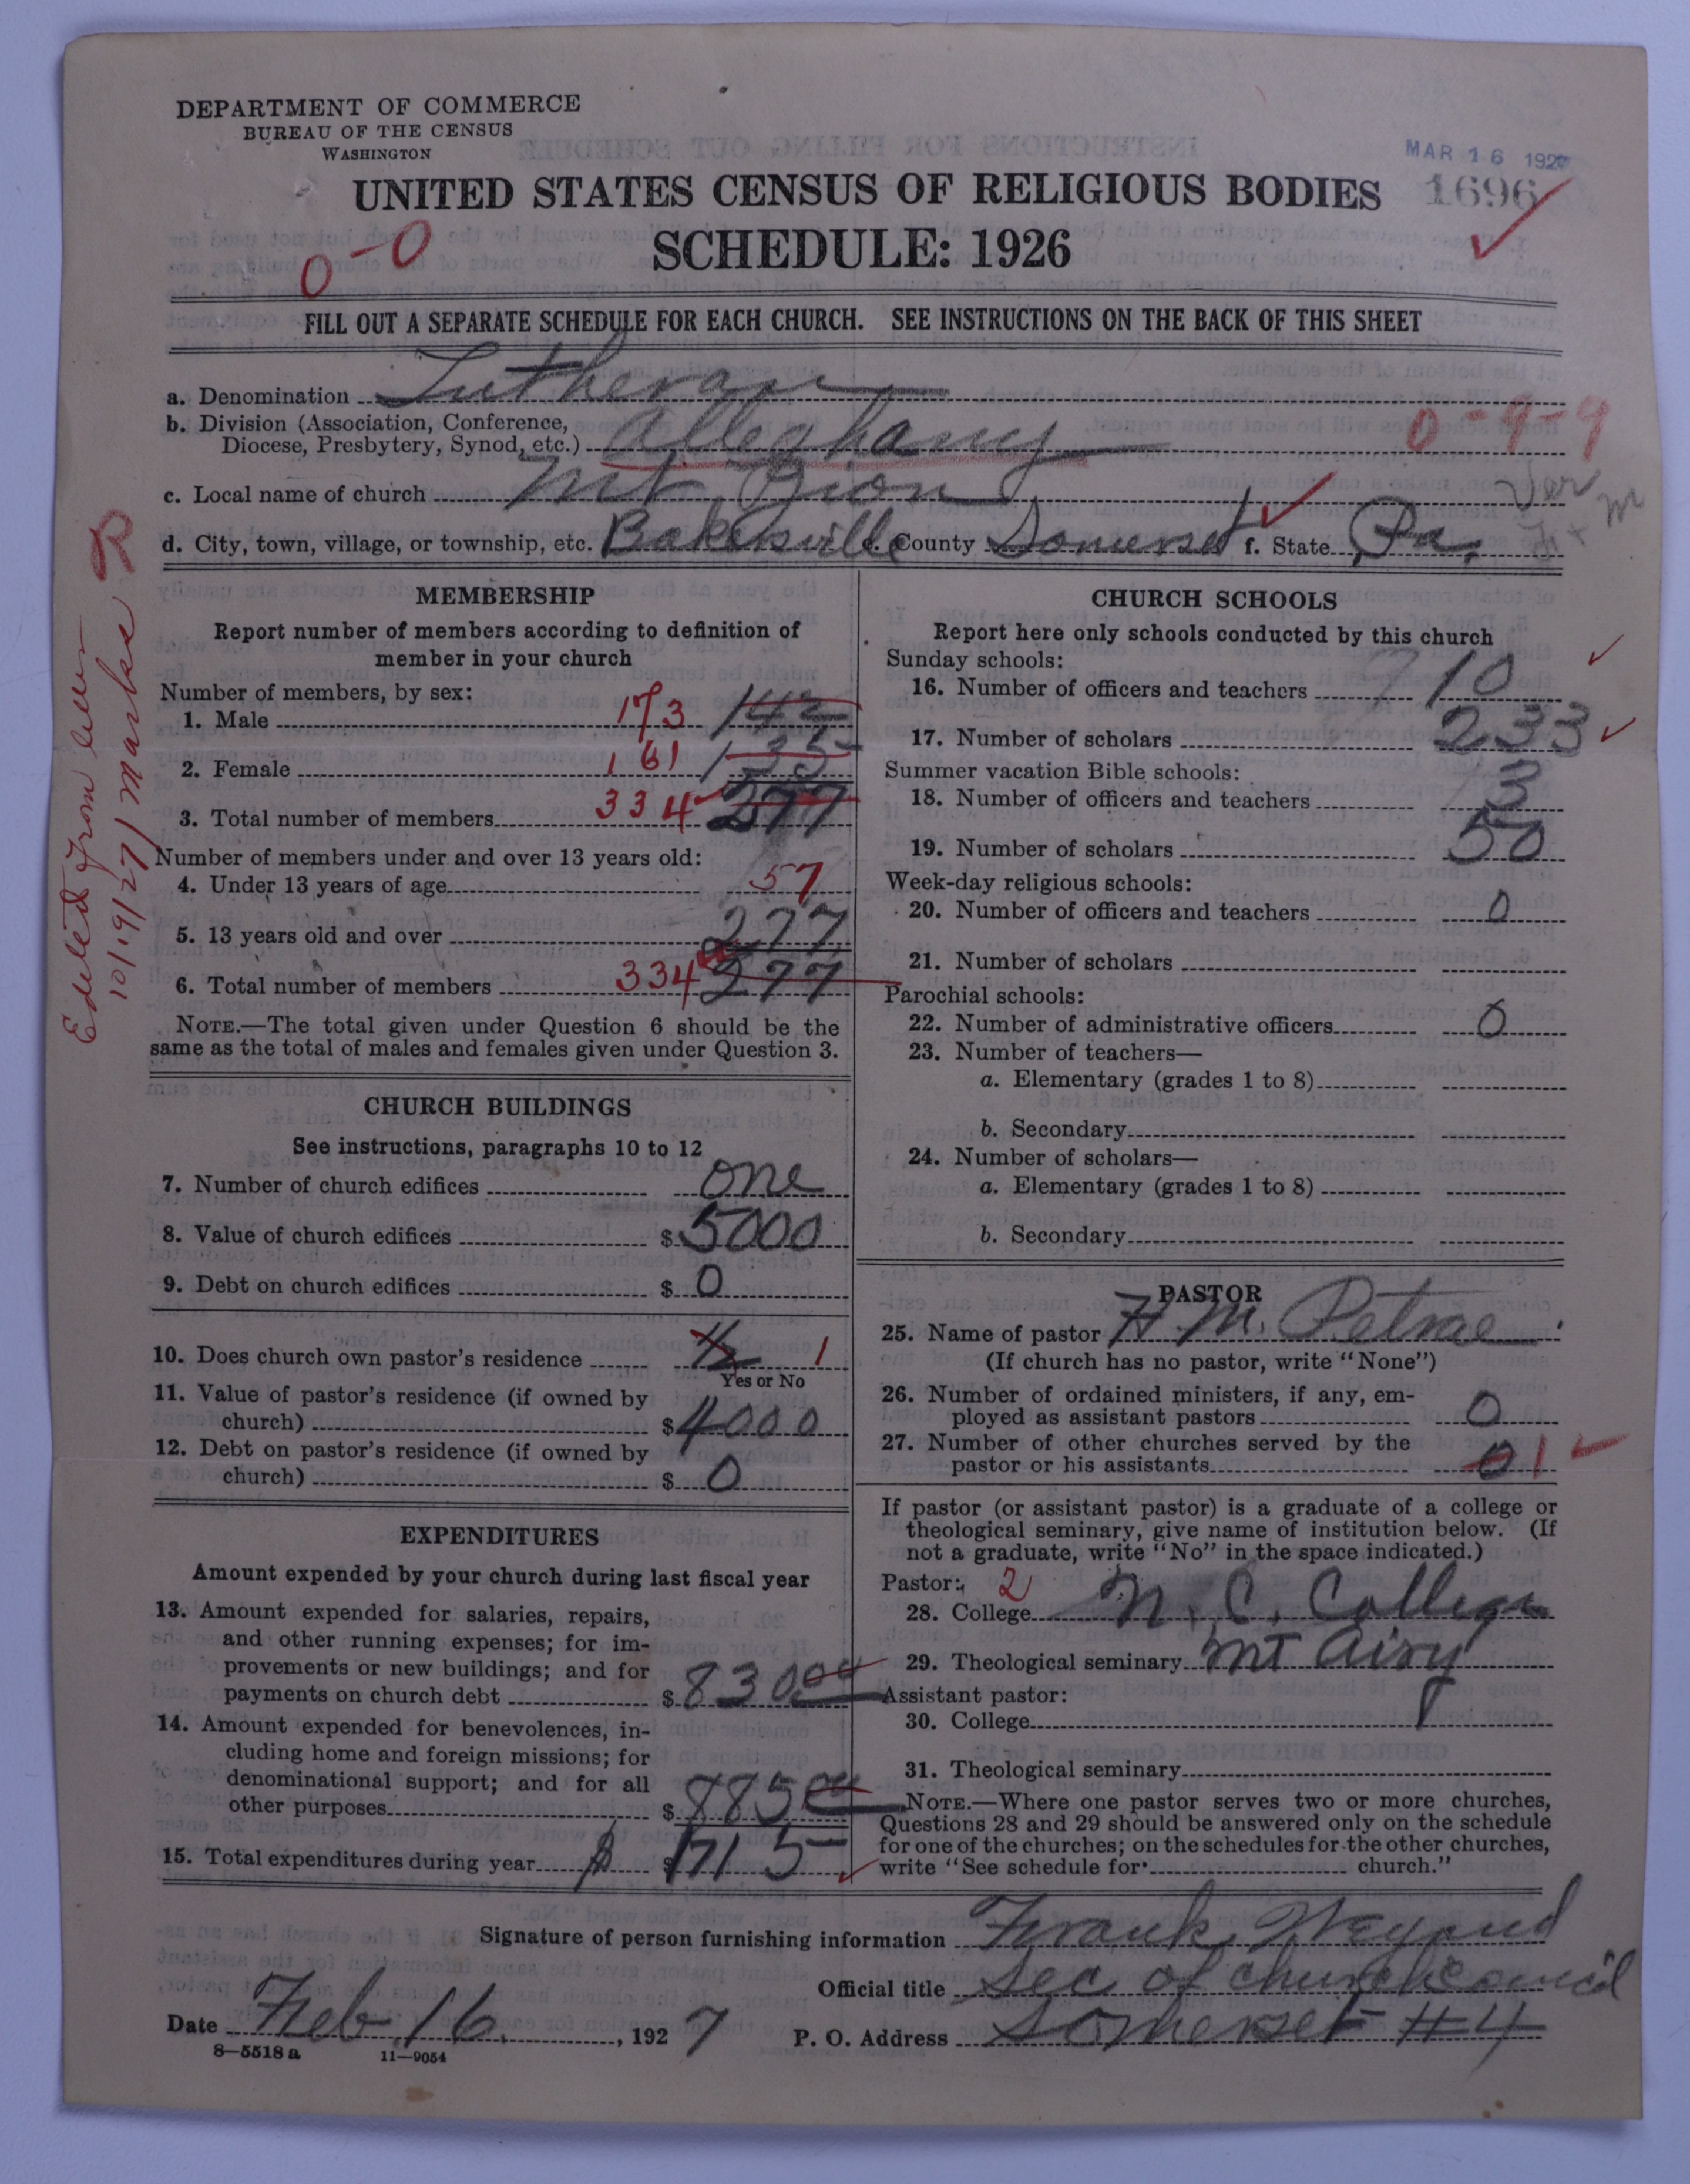 DEPARTMENT OF COMMERCE
BUREAU OF THE CENSUS
WASHINGTON
MAR 16 1927
1696
UNITED STATES CENSUS OF RELIGIOUS BODIES
SCHEDULE: 1926
0-0
FILL OUT A SEPARATE SCHEDULE FOR EACH CHURCH. SEE INSTRUCTIONS ON THE BACK OF THIS SHEET
a. Denomination Lutheran
b. Division (Association, Conference,
Diocese, Presbytery, Synod, etc.) Alleghany 0-9-9
c. Local name of church Mt. Zion
d. City, town, village, or township, etc. Bakersville e. County Somerset f. State Pa.
Edited from letter
10/19/27 Marks R
MEMBERSHIP
Report number of members according to definition of
member in your church
Number of members, by sex:
1. Male 173 142
2. Female 161 135
3. Total number of members 334 277
Number of members under and over 13 years old:
4. Under 13 years of age 57
5. 13 years old and over 277
6. Total number of members 334 277
NOTE.—The total given under Question 6 should be the
same as the total of males and females given under Question 3.
CHURCH BUILDINGS
See instructions, paragraphs 10 to 12
7. Number of church edifices one
8. Value of church edifices $ 5000
9. Debt on church edifices $ 0
10. Does church own pastor's residence 1/2 1
Yes or No
11. Value of pastor's residence (if owned by
church) $ 4000
12. Debt on pastor's residence (if owned by
church) $ 0
EXPENDITURES
Amount expended by your church during last fiscal year
13. Amount expended for salaries, repairs,
and other running expenses; for im-
provements or new buildings; and for
payments on church debt $ 830 00
14. Amount expended for benevolences, in-
cluding home and foreign missions; for
denominational support; and for all
other purposes $ 885 00
15. Total expenditures during year $ $ 1715
CHURCH SCHOOLS
Report here only schools conducted by this church
Sunday schools:
16. Number of officers and teachers 10
17. Number of scholars 233
Summer vacation Bible schools:
18. Number of officers and teachers 3
19. Number of scholars 50
Week-day religious schools:
20. Number of officers and teachers 0
21. Number of scholars
Parochial schools:
22. Number of administrative officers 0
23. Number of teachers—
a. Elementary (grades 1 to 8)
b. Secondary
24. Number of scholars—
a. Elementary (grades 1 to 8)
b. Secondary
PASTOR
25. Name of pastor H. M. Petrae
(If church has no pastor, write "None")
26. Number of ordained ministers, if any, em-
ployed as assistant pastors 0
27. Number of other churches served by the
pastor or his assistants 0 1
If pastor (or assistant pastor) is a graduate of a college or
theological seminary, give name of institution below. (If
not a graduate, write "No" in the space indicated.)
Pastor: 2
28. College N. C. College
29. Theological seminary Mt Airy
Assistant pastor:
30. College
31. Theological seminary
NOTE.—Where one pastor serves two or more churches,
Questions 28 and 29 should be answered only on the schedule
for one of the churches; on the schedules for the other churches,
write "See schedule for church."
Signature of person furnishing information Frank Weyand
Official title Sec of church council
Date Feb. 16, 1927 P. O. Address Somerset #4
8—5518 a 11—9054